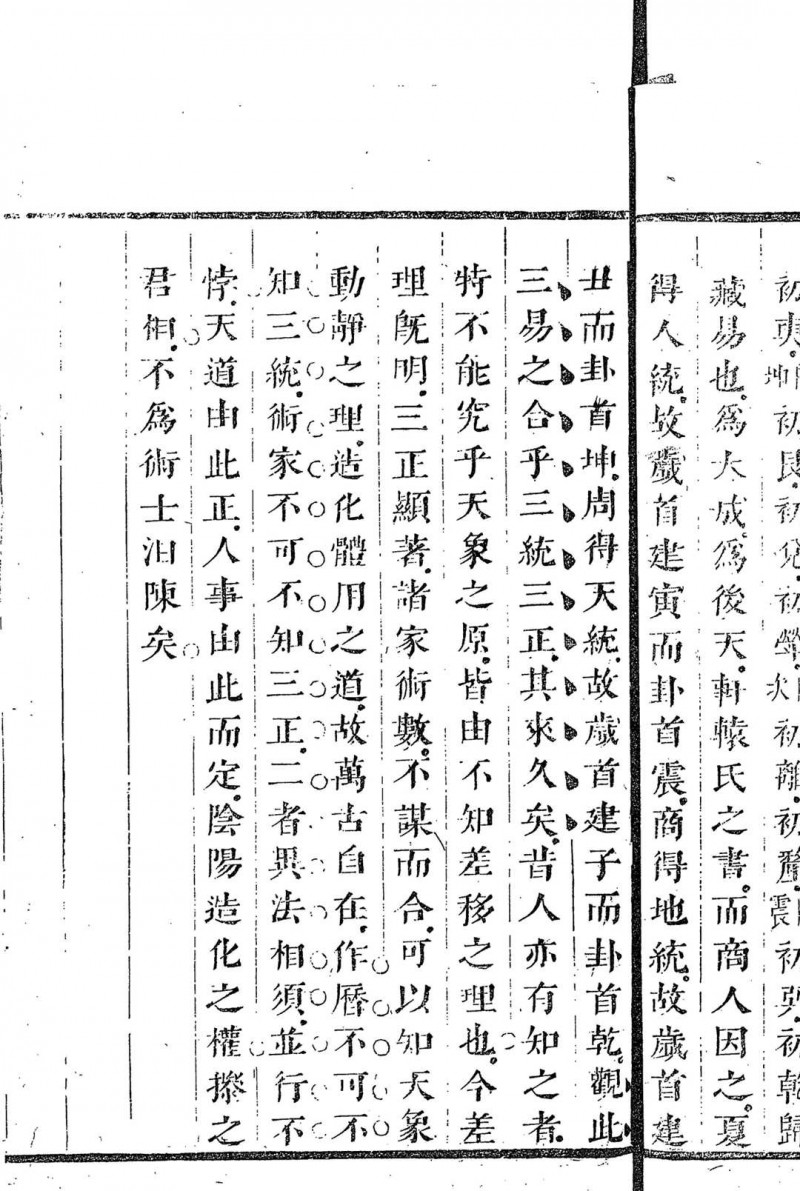 初奭坤初艮初兌初犖初離初釐震初巽初乾歸
藏易也爲大成爲後天軒轅氏之書而商人因之夏
得人統故歲首建寅而卦首震商得地統故歲首建
丑而卦首坤周得天統故歲首建子而卦首乾觀此
三易之合乎三統三正其來久矣昔人亦有知之者
特不能究乎天象之原皆由不知差移之理也今差
理旣明三正顯著諸家術數不謀而合可以知天象
動靜之理造化體用之道故萬古自在作曆不可不
知三統術家不可不知三正二者異法相須並行不
悖天道由此正人事由此而定陰陽造化之權操之
君相不爲術士汨陳矣